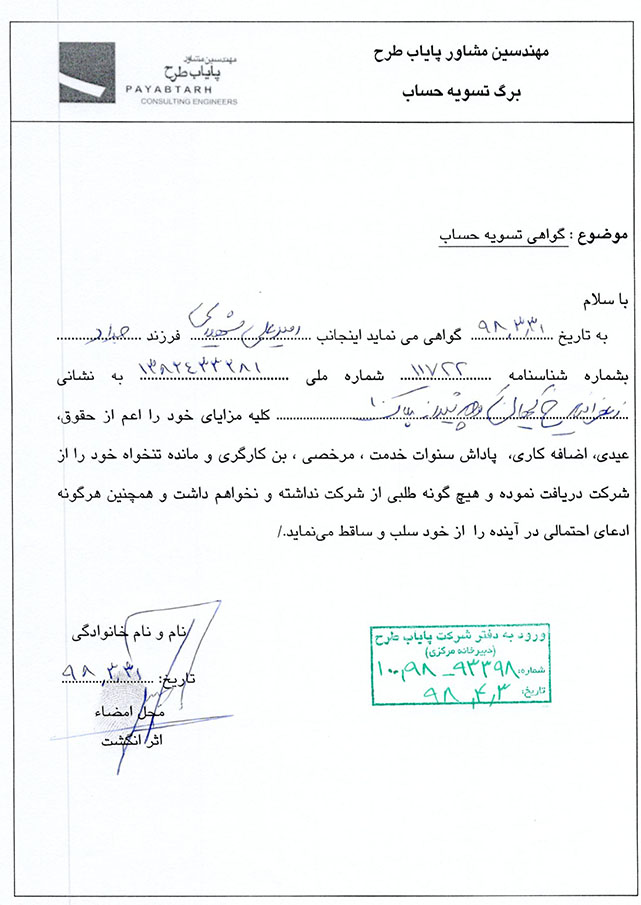 مهندسین مشاور پایاب طرح
برگ تسویه حساب
مهندسین مشاور
پایاب طرح
PAYABTARH
CONSULTING ENGINEERS
موضوع : گواهی تسویه حساب
با سلام
به تاریخ ۹۸,۳,۳۱ گواهی می نماید اینجانب فرزند
بشماره شناسنامه ۱۱۷۲۲ شماره ملی به نشانی
کلیه مزایای خود را اعم از حقوق،
عیدی، اضافه کاری، پاداش سنوات خدمت ، مرخصی ، بن کارگری و مانده تنخواه خود را از
شرکت دریافت نموده و هیچ گونه طلبی از شرکت نداشته و نخواهم داشت و همچنین هرگونه
ادعای احتمالی در آینده را از خود سلب و ساقط می‌نماید./
نام و نام خانوادگی
تاریخ: ۹۸,۳,۳۱
محل امضاء
اثر انگشت
ورود به دفتر شرکت پایاب طرح
(دبیرخانه مرکزی)
شماره: ۱۰۰,۹۸-۹۳۳۹۸
تاریخ: ۹۸,۴,۳